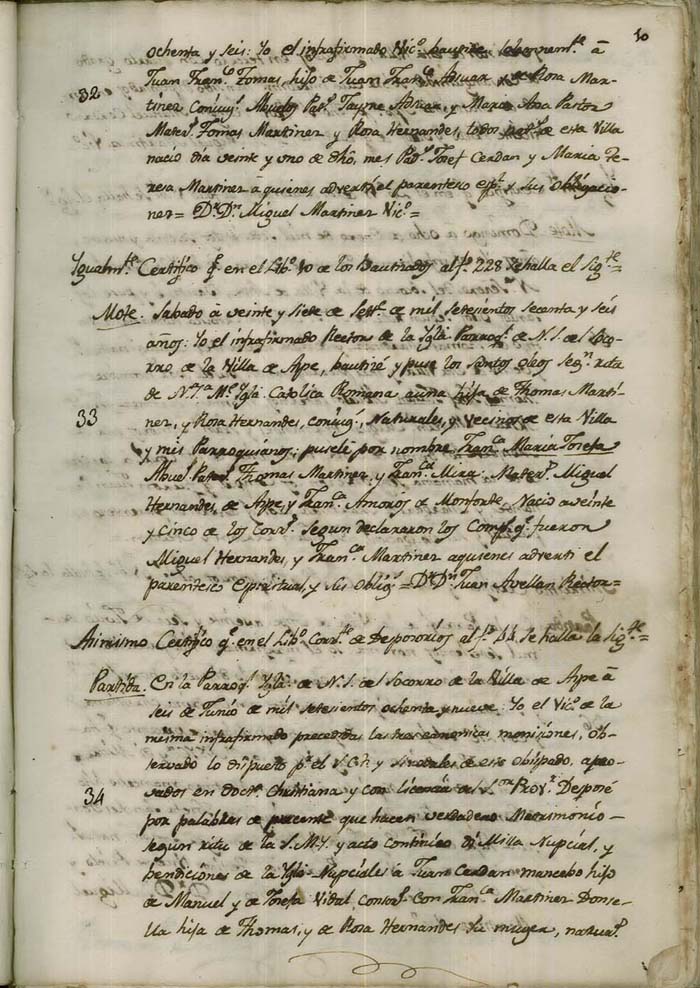 10
ochenta y seis: Yo el infrafirmado Vic.º bautize solemnem.te â
Juan Fran.co Tomas, hijo de Juan Fran.co Aznar y de Rosa Mar-
32
tinez Conjug.s Abuelos Pat.s Jayme Aznar, y Maria Ana Pastor
Mater.s Tomas Martinez y Rosa Hernandes, todos nat.s de esta Villa
nacio dia veinte y uno de dho, mes Pad.s Josef Cerdan y Maria Te-
resa Martinez â quienes adverti el parentesco esp.l y sus obligacio-
nes= D.r D.n Miguel Martinez Vic.º=
Igualm.te Certifico q.e en el Lib.º 10 de los Bautizados al f.º 228 se halla el sig.te=
Mote. Sabado â veinte y siete de Set.e de mil setesientos secenta y seis
años: Yo el infrafirmado Rector de la Ygl.a Parroq.l de N.S. del Soco-
rro, de la Villa de Aspe, bautizé y puse los santos oleos seg.n rito
de N.ra M.e Ygl.a Catolica Romana a una hija de Thomas Martí-
33
nez, y Rosa Hernandes, conjug.s, Naturales, y Vecinos de esta Villa
y mis Parroquianos; pusele por nombre Fran.ca Maria Josefa
Abue.s Pater.s Thomas Martinez y Fran.ca Mira: Mater.s Miguel
Hernandes, de Aspe, y Fran.ca Amoros de Monforde, Nacio a veinte
y cinco de los Corr.s segun declararon los Comp.s q.e fueron
Miguel Hernandes, y Fran.ca Martinez a quienes adverti el
parentesco Espiritual, y sus oblig.s = D.r D.n Juan Avellan Rector=
Asimismo Certifico q.e en el Lib.º Corr.te de Desposorios al f.º 44 se halla la sig.te=
Partida. En la Parroq.l Ygl.a de N.S. del Socorro de la Villa de Aspe â
seis de Junio de mil setesientos ochenta y nueve: Yo el Vic.º de la
misma infrafirmado precedidas las tres canonicas moniziones, Ob-
servado lo dispuesto p.r el S.C.T. y sinodales de este Obispado, apro-
vados en doct.a Christiana y con licencia del S.or Prov.r Desposé
34
por palabras de presente que hacen verdadero Matrimonio-
segun ritu de la S.M.Y. y acto continuo dí Missa Nupcial, y
bendiciones de la Ygl.a Nupciales â Juan Cerdan mancebo hijo
de Manuel y de Josefa Vidal consor.s Con Fran.ca Martinez Donse-
lla hija de Thomas, y de Rosa Hernandes su muger, natur.s